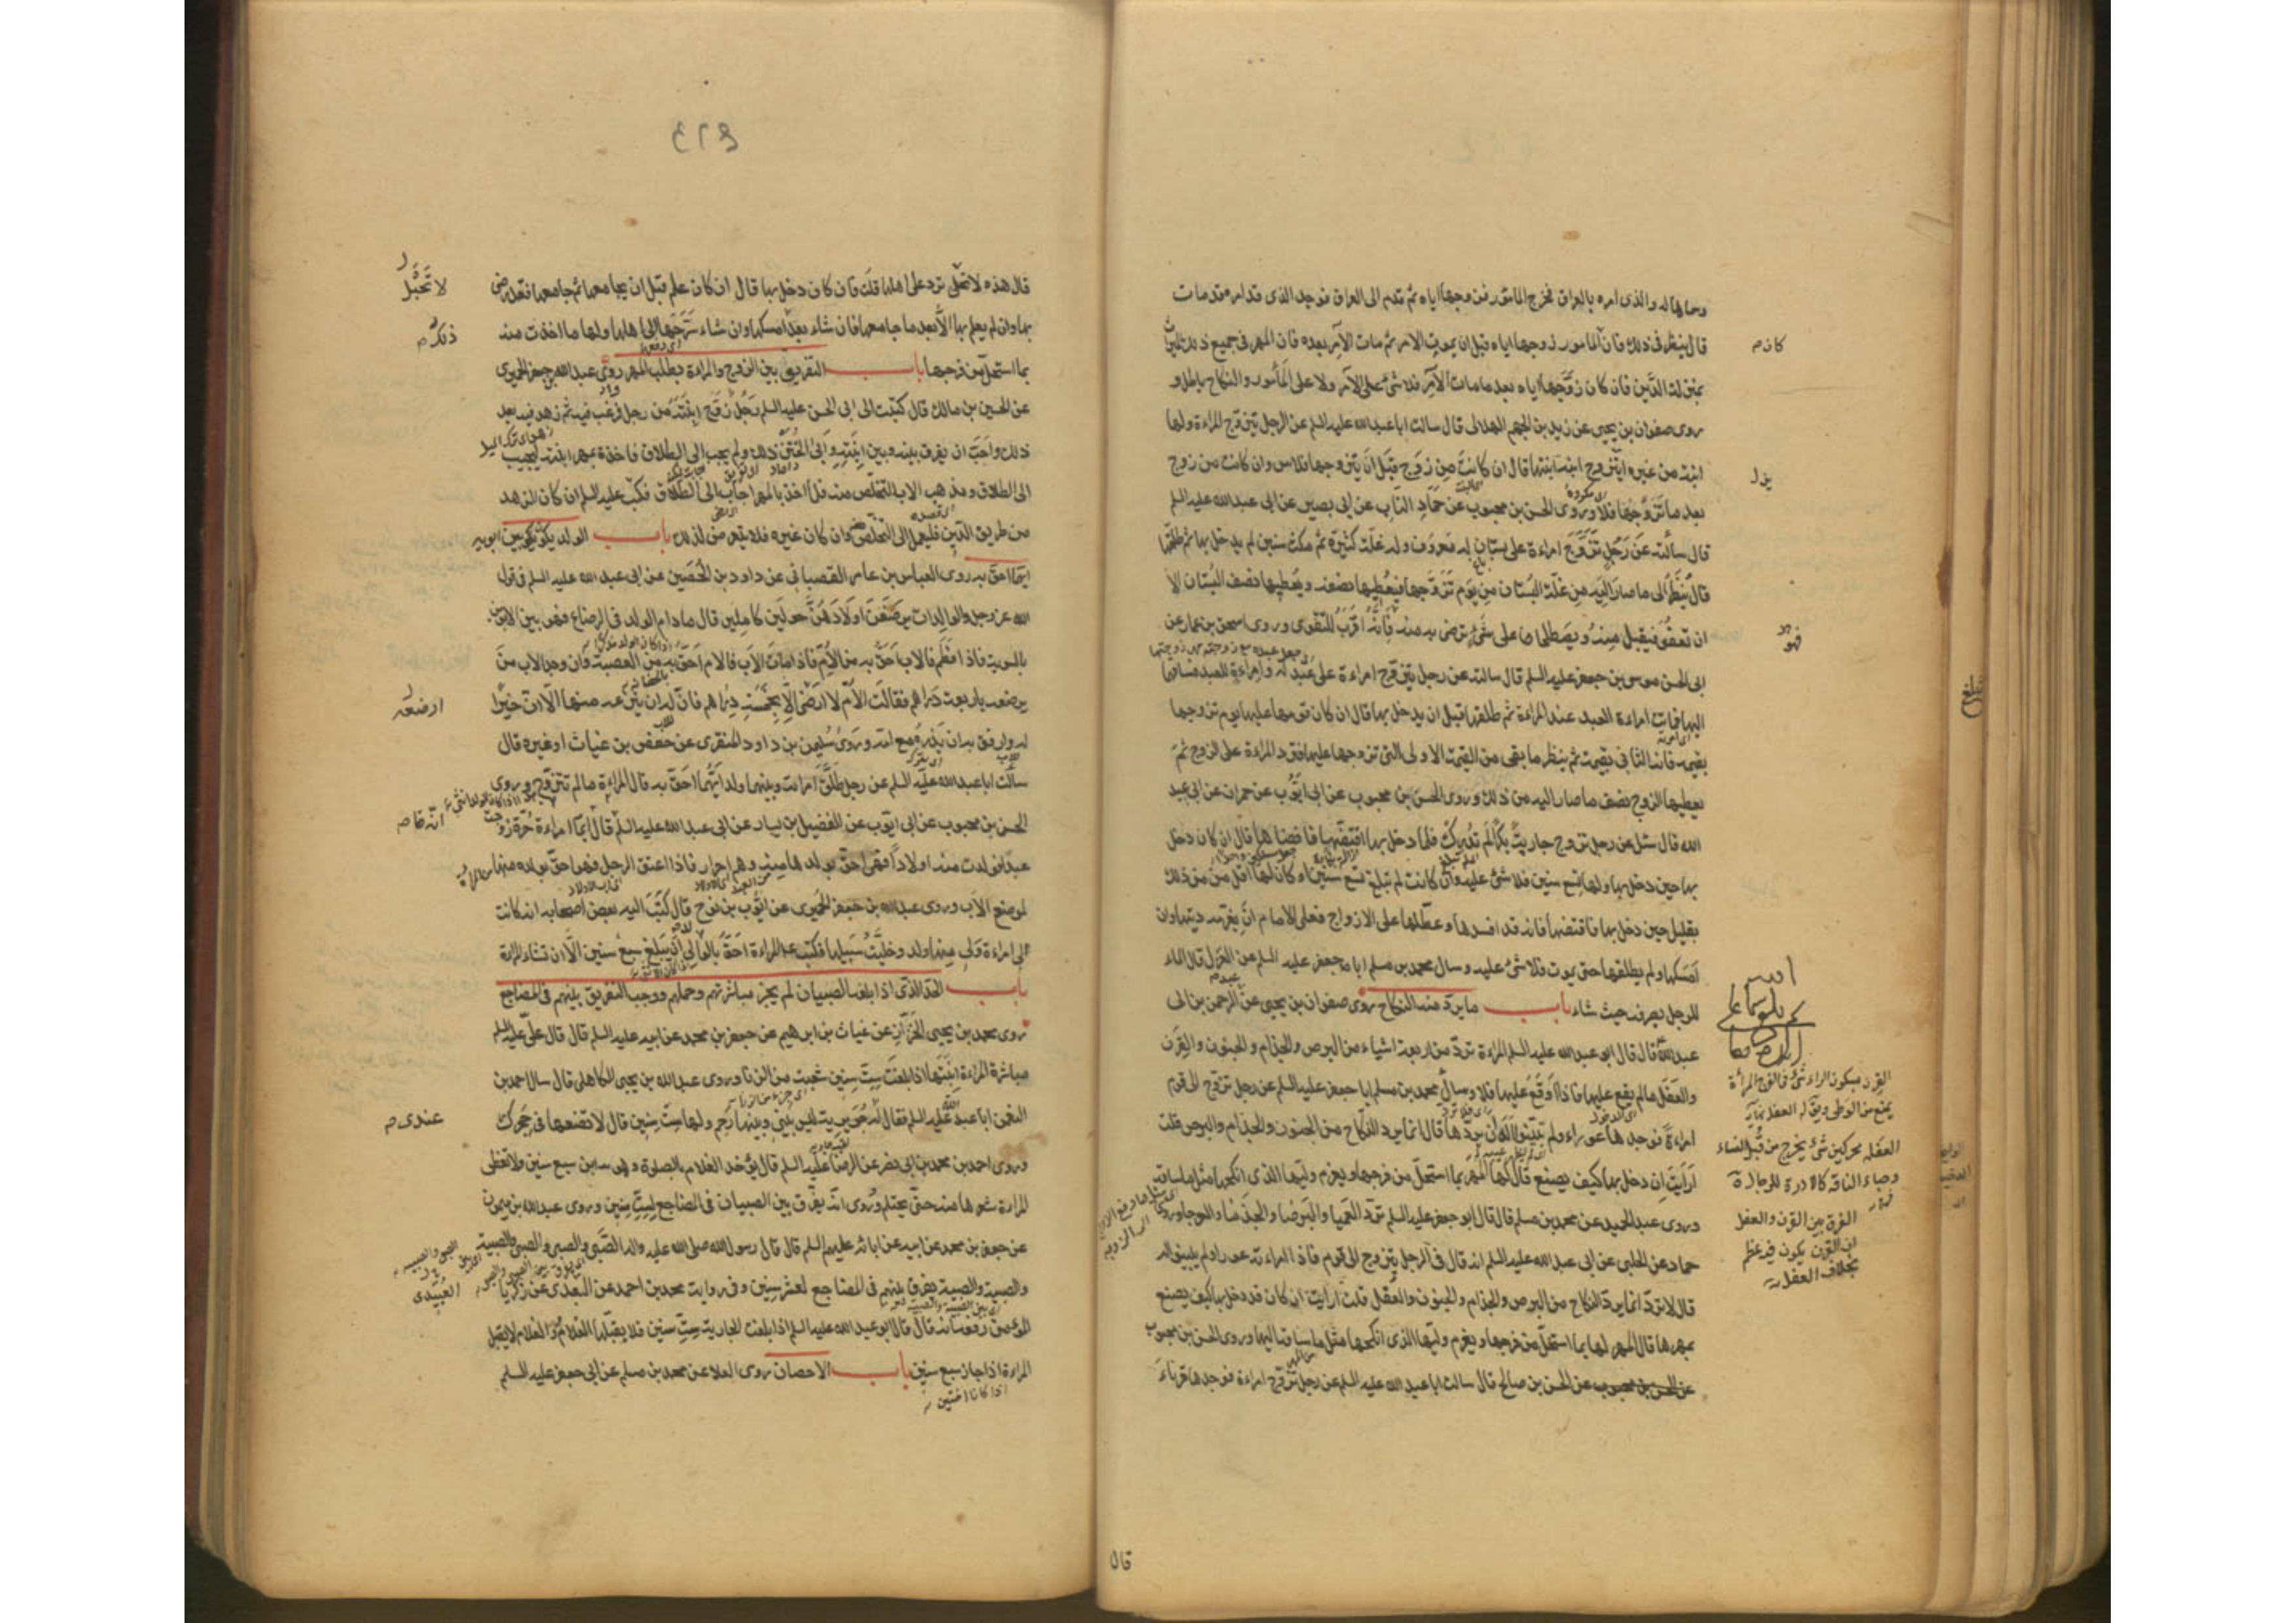 وحالها له والذي امره بالعراق فخرج المأمور فزوجها اياه ثم قدم الى العراق فوجد الذي قد امره قد مات
قال ينظر في ذلك فان المأمور زوجها اياه قبل ان يموت الآمر ثم مات الآمر بعده فان المهر في جميع ذلك
بمنزلة الدَّين فان كان زوَّجها اياه بعد ما مات الآمر فلا شئ على الآمر ولا على المأمور والنكاح باطل و
روى صفوان بن يحيى عن زيد بن الجهم الهلالى قال سالت ابا عبد الله عليه السلم عن الرجل يتزوج المراءة ولها
ابنة من غيره ايتزوج ابنه ابنتها قال ان كانت من زوج قبل ان يتزوجها فلا باس وان كانت من زوج
بعد ما تزوجها فلا وروى الحسن بن محبوب عن حماد الناب عن ابى بصير عن ابى عبد الله عليه السلم
قال سألته عن رجل تزوج امراءة على بستان له معروف وله غلة كثيرة ثم مكث سنين لم يدخل بها ثم طلقها
قال ينظر الى ما صار اليه من غلة البستان من يوم تزوجها فيعطيها نصفه ويعطيها نصف البستان الا
ان تعفو فيقبل منه ويصطلحان على شئ ترضى به منه فانه اقرب للتقوى وروى اسحق بن عمار عن
ابى الحسن موسى بن جعفر عليه السلم قال سالته عن رجل يتزوج امراءة على عبد له وامراءة للعبد فساقهما
اليها فماتت امراءة العبد عند المراءة ثم طلقها قبل ان يدخل بها قال ان كان قومها عليها يوم تزوجها
بقيمة فانه الثانى بقيمة ثم ينظر ما بقى من القيمة الاولى التى تزوجها عليها فترد المراءة على الزوج ثم
يعطيها الزوج نصف ما صار اليه من ذلك وروى الحسن بن محبوب عن ابى ايوب عن حمران عن ابى عبد
الله قال سئل عن رجل تزوج جارية بكرا لم تدرك فلما دخل بها اقتضها فافضاها قال ان كان دخل
بها حين دخل بها ولها تسع سنين فلا شئ عليه وان كانت لم تبلغ تسع سنين او كان لها اقل من ذلك
بقليل حين دخل بها فاقتضها فانه قد افسدها وعطلها على الازواج فعلى الامام ان يغرمه ديتها وان
امسكها ولم يطلقها حتى يموت فلا شئ عليه وسال محمد بن مسلم ابا جعفر عليه السلم عن العزل قال الماء
للرجل يصرفه حيث شاء باب ما يرد منه النكاح روى صفوان بن يحيى عن عبد الرحمن بن ابى
عبد الله قال قال ابو عبد الله عليه السلم المراءة ترد من اربعة اشياء من البرص والجذام والجنون والقرن
والعفل ما لم يقع عليها فاذا وقع عليها فلا وسال محمد بن مسلم ابا جعفر عليه السلم عن رجل تزوج الى قوم
امراءة فوجدها عوراء ولم يبينوا له ان يردها قال انما يرد النكاح من الجنون والجذام والبرص قلت
ارايت ان دخل بها كيف يصنع قال لها المهر بما استحل من فرجها ويغرم وليها الذى انكحها مثل ما ساقه
وروى عبد الحميد عن محمد بن مسلم قال قال ابو جعفر عليه السلم ترد العميا والبرصا والجذما والعرجا وروى
حماد عن الحلبى عن ابى عبد الله عليه السلم انه قال فى الرجل يتزوج الى قوم فاذا امراءته عوراء ولم يبينوا له
قال لا ترد انما يرد النكاح من البرص والجذام والجنون والعفل قلت ارايت ان كان قد دخل بها كيف يصنع
بمهرها قال المهر لها بما استحل من فرجها ويغرم وليها الذى انكحها مثل ما ساق اليها وروى الحسن بن محبوب
عن الحسن بن صالح قال سالت ابا عبد الله عليه السلم عن رجل تزوج امراءة فوجدها قرناء
كان م
القرن بسكون الراء شئ فى الفرج المرأة
يمنع من الوطى ويقال له العفله
العفله محركين شئ يخرج من قبل النساء
وحياء الناقة كالادرة للرجال
الفرق بين القرن والعفل
ان القرن يكون فيه عظم
بخلاف العفل
قال
٤٢٩
قال هذه لا تحبل ترد على اهلها قلت فان كان دخل بها قال ان كان علم قبل ان يجامعها ثم جامعها فقد رضى
بها وان لم يعلم بها الا بعد ما جامعها فان شاء بعد امسكها وان شاء سرحها الى اهلها ولها ما اخذت منه
بما استحل من فرجها باب التفريق بين الزوج والمراءة بطلب المهر روى عبد الله بن جعفر الحميرى
عن الحسين بن مالك قال كتبت الى ابى الحسن عليه السلم رجل زوج ابنته من رجل فرغب فيه ثم زهد فيه بعد
ذلك واحب ان يفرق بينه وبين ابنته وابى الختن ذلك ولم يجب الى الطلاق فاخذه بمهر ابنته ليجيب
الى الطلاق ومذهب الاب التخلص منه فلما اخذ بالمهر اجاب الى الطلاق فكتب عليه السلم ان كان الزهد
من طريق الدين فليعمل الى التخلص وان كان غيره فلا يتعرض لذلك باب الولد يكون بين ابويه
ايهما احق به روى العباس بن عامر القصبانى عن داود بن الحصين عن ابى عبد الله عليه السلم فى قول
الله عز وجل والوالدات يرضعن اولادهن حولين كاملين قال ما دام الولد فى الرضاع فهو بين الابوين
بالسوية فاذا فطم فالاب احق به من الام فاذا مات الاب فالام احق به من العصبة وان وجد الاب من
يرضعه باربعة دراهم فقالت الام لا ارضى الا بخمسة دراهم فان له ان ينزعه منها الا ان خيرا
له وارفق به ان يذره مع امه وروى سليمن بن داود المنقرى عن حفص بن غياث او غيره قال
سالت ابا عبد الله عليه السلم عن رجل طلق امراته وبينهما ولد ايهما احق به قال المراءة ما لم تتزوج وروى
الحسن بن محبوب عن ابى ايوب عن الفضيل بن يسار عن ابى عبد الله عليه السلم قال ايما امراءة حرة تزوجت
عبدا فولدت منه اولادا فهى احق بولدها منه وهم احرار فاذا اعتق الرجل فهو احق بولده منها
لموضع الاب وروى عبد الله بن جعفر الحميرى عن ايوب بن نوح قال كتب اليه بعض اصحابه انه كانت
لى امراءة ولى منها ولد وخليت سبيلها فكتب المراءة احق بالولد الى ان يبلغ سبع سنين الا ان تشاء المراة
باب الحد الذى اذا بلغه الصبيان لم يجز مباشرتهم وحملهم ووجب التفريق بينهم فى المضاجع
روى محمد بن يحيى الخزاز عن غياث بن ابرهيم عن جعفر بن محمد عن ابيه عليه السلم قال قال على عليه السلم
مباشرة المراءة ابنتها اذا بلغت ست سنين شعبة من الزنا وروى عبد الله بن يحيى الكاهلى قال سال احمد بن
النعمن ابا عبد الله عليه السلم فقال له جويرية ليس بينى وبينها رحم ولها ست سنين قال لا تضعها فى حجرك
وروى احمد بن محمد بن ابى نصر عن الرضا عليه السلم قال يؤخذ الغلام بالصلوة وهو ابن سبع سنين ولا تغطى
المراءة شعرها منه حتى يحتلم وروى انه يفرق بين الصبيان فى المضاجع لست سنين وروى عبد الله بن ميمون
عن جعفر بن محمد عن ابيه عن ابائه عليهم السلم قال قال رسول الله صلى الله عليه واله الصبى والصبى والصبى والصبية
والصبية والصبية يفرق بينهم فى المضاجع لعشر سنين وفى رواية محمد بن احمد عن العبيدى عن زكريا
المؤمن رفعه انه قال قال ابو عبد الله عليه السلم اذا بلغت الجارية ست سنين فلا يقبلها الغلام والغلام لا يقبل
المراءة اذا جاز سبع سنين باب الاحصان روى العلا عن محمد بن مسلم عن ابى جعفر عليه السلم
لا تحبل
ذلك م
ارضعه
عندى م
العبيدى